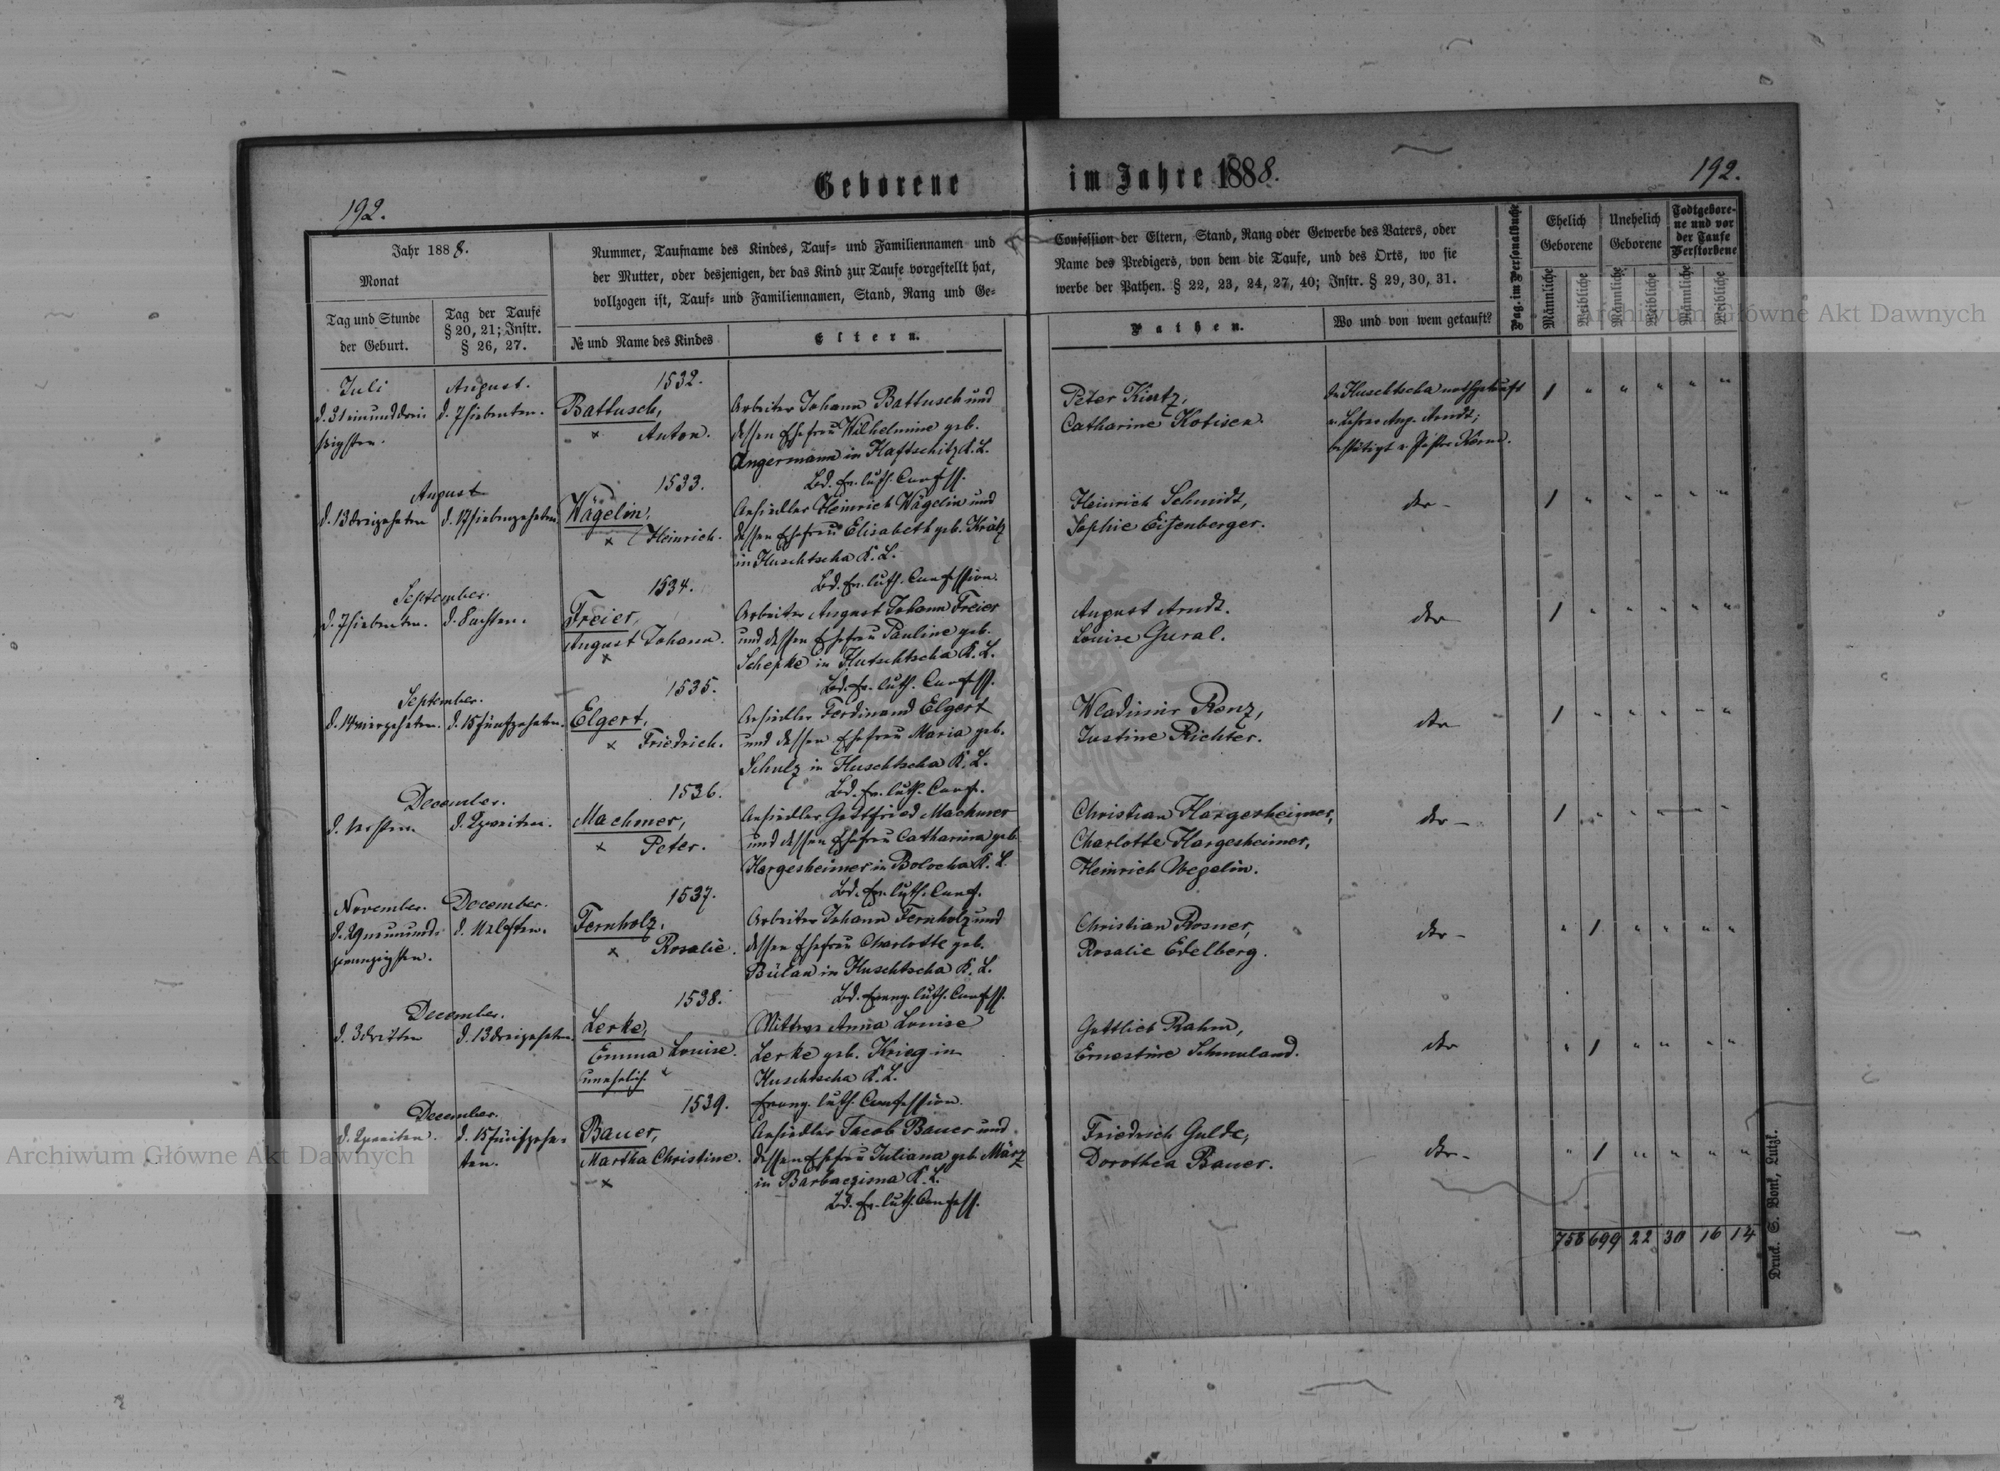 Geborene im Jahre 1888.
192.
192.
Jahr 1888.
Monat
Tag und Stunde
der Geburt.
Tag der Taufe
§ 20, 21; Instr.
§ 26, 27.
Nummer, Taufname des Kindes, Tauf- und Familiennamen und
der Mutter, oder desjenigen, der das Kind zur Taufe vorgestellt hat,
vollzogen ist, Tauf- und Familiennamen, Stand, Rang und Ge-
№ und Name des Kindes
Eltern.
Confession der Eltern, Stand, Rang oder Gewerbe des Vaters, oder
Name des Predigers, von dem die Taufe, und des Orts, wo sie
werbe der Pathen. § 22, 23, 24, 27, 40; Instr. § 29, 30, 31.
Pathen.
Wo und von wem getauft?
Pag. im Personalbuche
Ehelich
Geborene
Unehelich
Geborene
Todtgebore-
ne und vor
der Taufe
Verstorbene
Männliche
Weibliche
Männliche
Weibliche
Männliche
Weibliche
Juli
August.
1532.
d. 31 einunddrei
ßigsten.
d. 7 siebenten.
Battusch,
× Anton.
Arbeiter Johann Battusch und
dessen Ehefrau Wilhelmine geb.
Angermann in K. L.
Bd. Ev. luth. Confess.
Peter
Catharine
In Huschtscha nothgetauft
v. Lehrer Aug. Arndt;
bestätigt v. Pastor
1 " " " " "
August
1533.
d. 13 dreizehnten
d. 17 siebenzehnten
Wägelin,
× Heinrich.
Ansiedler Heinrich Wägelin und
dessen Ehefrau Elisabeth geb. Krätz
in Huschtscha K. L.
Bd. Ev. luth. Confession.
Heinrich Schmidt,
Sophie Eisenberger.
dto -
1 " " " " "
September.
1534.
d. 7 siebenten.
d. 8 achten.
Freier,
August Johann.
×
Arbeiter August Johann Freier
und dessen Ehefrau Pauline geb.
Schepke in Hutschtscha K. L.
Bd. Ev. luth. Confess.
August Arndt.
Louise Gural.
dto
1 " " " " "
September.
1535.
d. 14 vierzehnten.
d. 15 fünfzehnten.
Elgert,
× Friedrich.
Ansiedler Ferdinand Elgert
und dessen Ehefrau Maria geb.
Schulz in Huschtscha K. L.
Bd. Ev. luth. Conf.
Wladimir Renz,
Justine Richter.
dto
1 " " " " "
December.
1536.
d. 1 ersten.
d. 2 zweiten.
Machmer,
× Peter.
Ansiedler Gottfried Machmer
und dessen Ehefrau Catharina geb.
Hargesheimer in Bolocha K. L.
Bd. Ev. luth. Conf.
Christian Hargesheimer,
Charlotte Hargesheimer,
Heinrich Wegelin.
dto -
1 " " " " "
November.
December.
1537.
d. 29 neunund-
zwanzigsten.
d. 11 elften.
Fernholz,
× Rosalie.
Arbeiter Johann Fernholz und
dessen Ehefrau Charlotte geb.
Bülan in Huschtscha K. L.
Bd. Evang. luth. Confess.
Christian Rosner,
Rosalie Edelberg.
dto -
" 1 " " " "
December.
1538.
d. 3 dritten
d. 13 dreizehnten.
Lerke,
Emma Louise.
unehelich ×
Wittwe Anna Louise
Lerke geb. Krieg in
Huschtscha K. L.
Evang. luth. Confession.
Gottlieb Rahm,
Ernestine Schmuland.
dto
" 1 " " " "
December.
1539.
d. 2 zweiten.
d. 15 fünfzehn-
ten.
Bauer,
Martha Christine.
- ×
Ansiedler Jacob Bauer und
dessen Ehefrau Juliana geb. März
in K. L.
Bd. Ev. luth. Confess.
Friedrich Gulde,
Dorothea Bauer.
dto -
" 1 " " " "
758 699 22 30 16 14
Druck. S. Bonk, Lutzk.
Archiwum Główne Akt Dawnych
Archiwum Główne Akt Dawnych